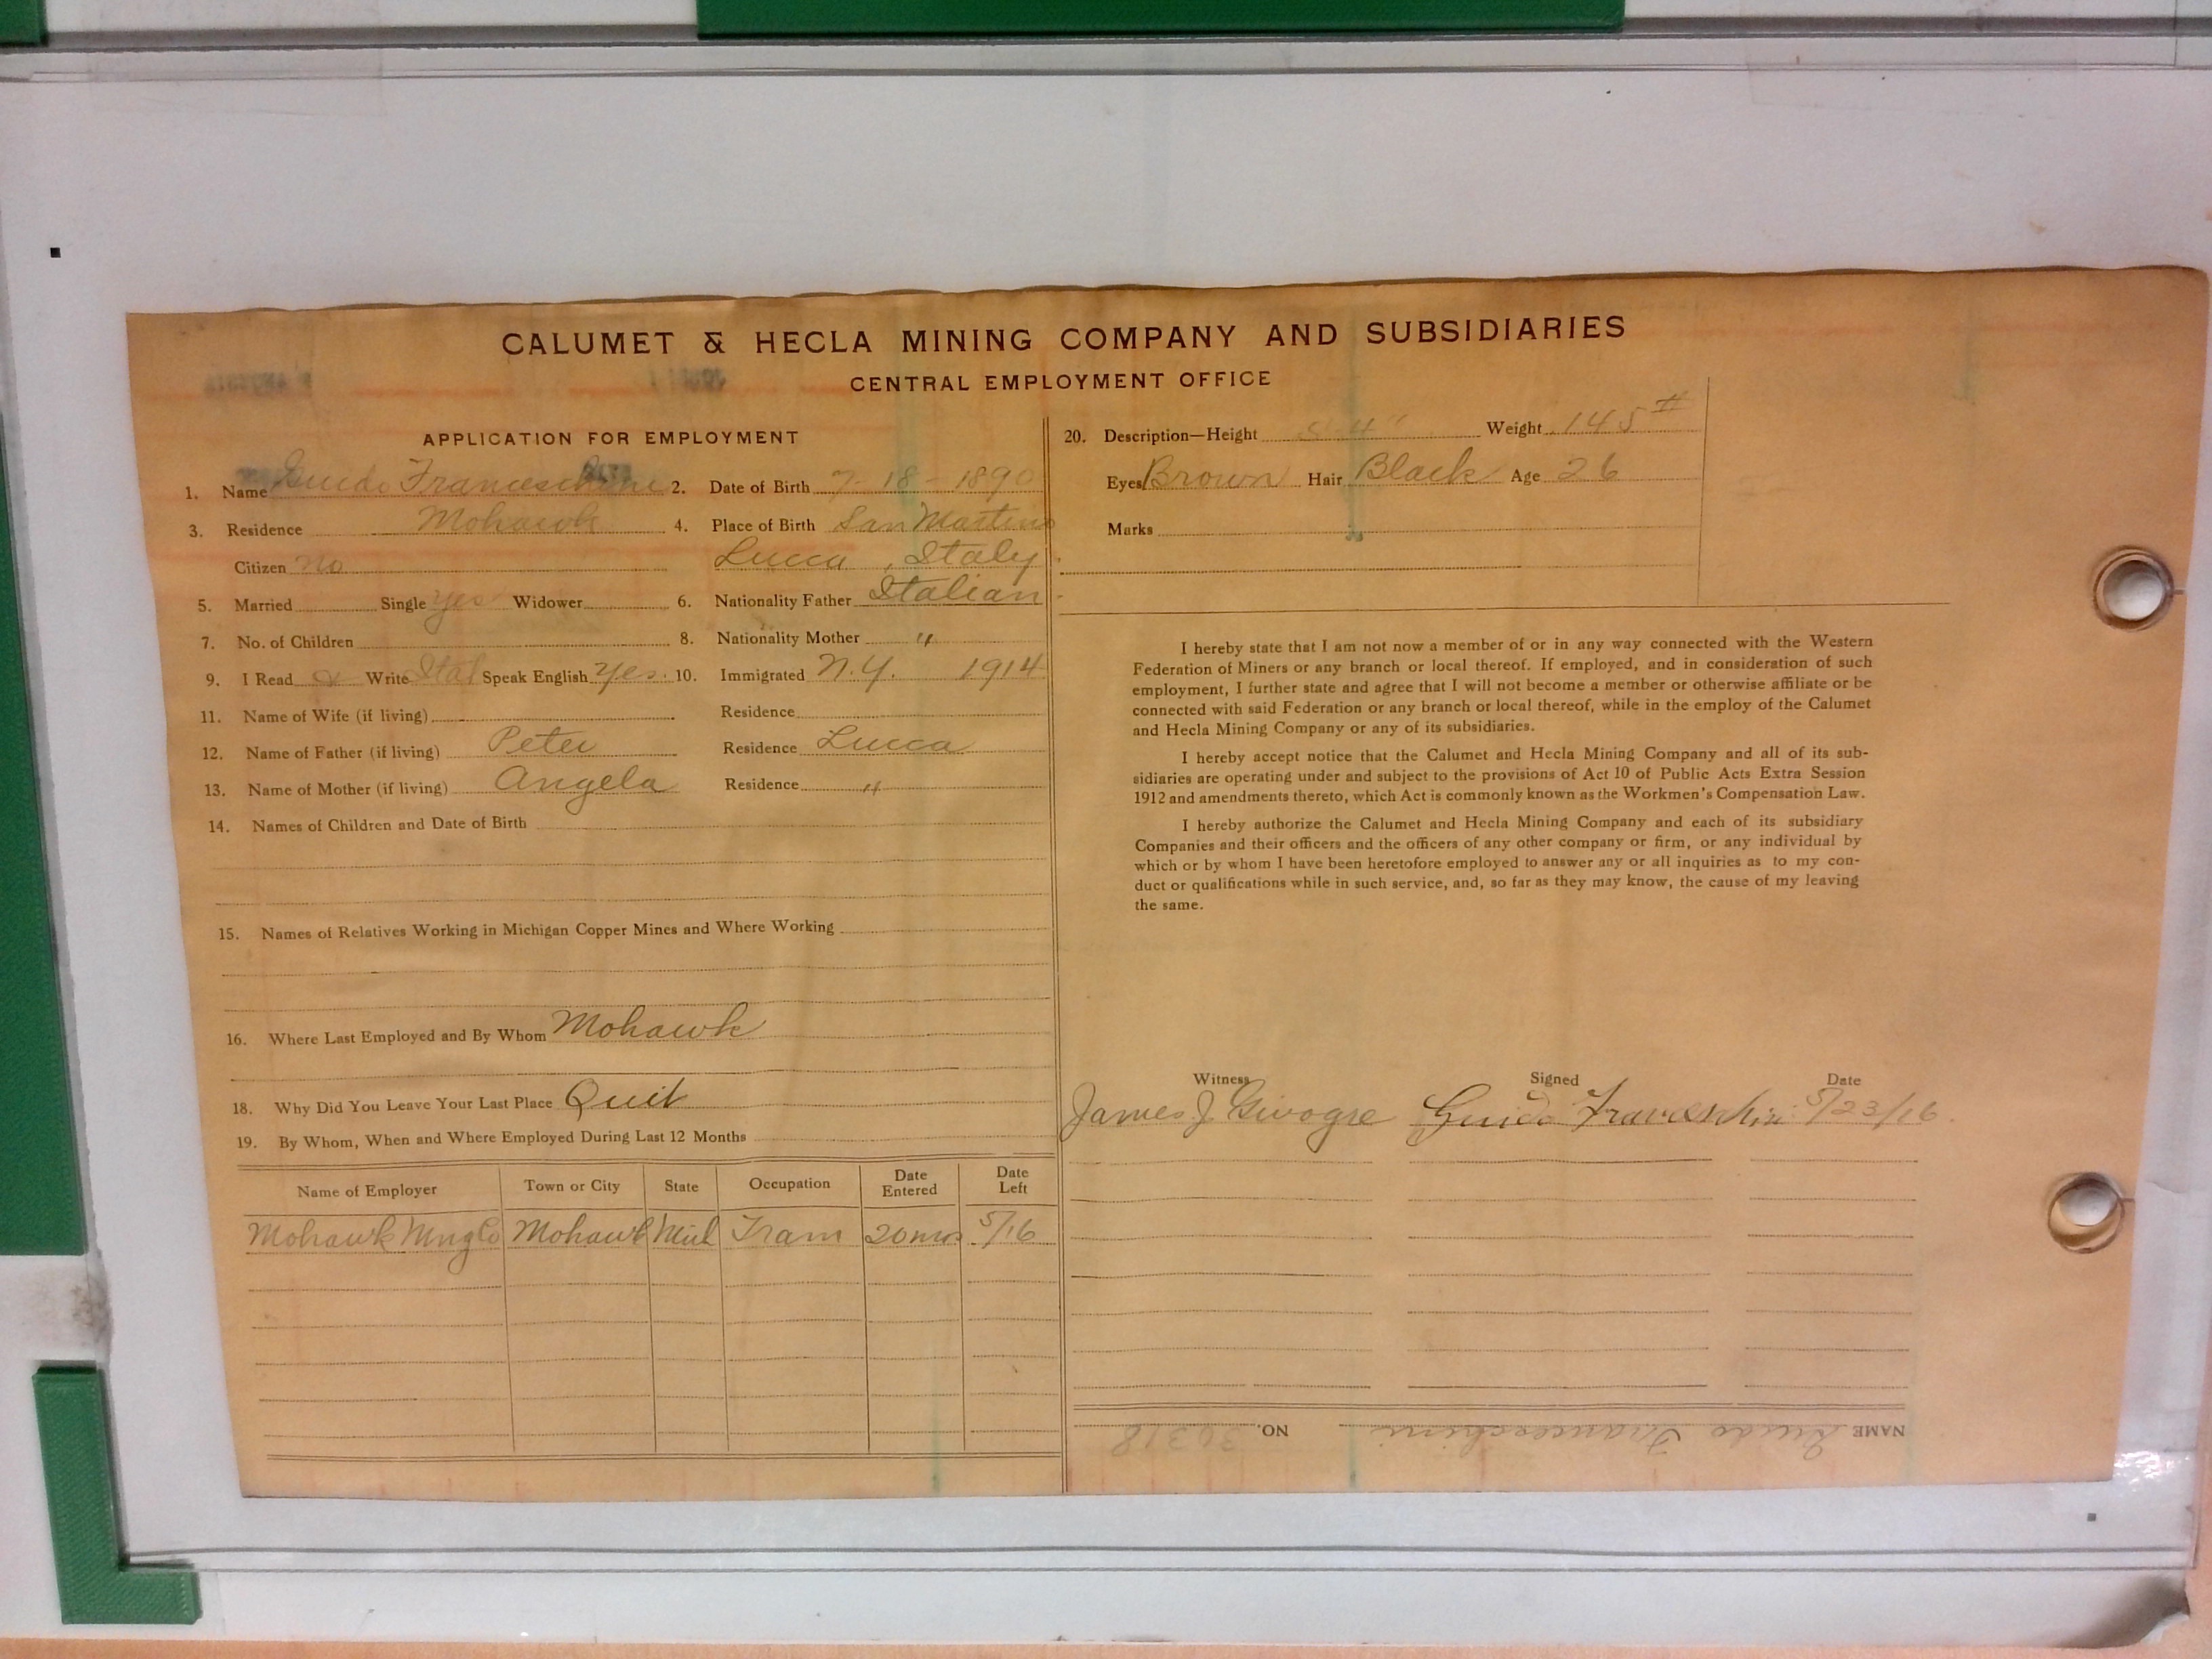 CALUMET & HECLA MINING COMPANY AND SUBSIDIARIES
CENTRAL EMPLOYMENT OFFICE
APPLICATION FOR EMPLOYMENT
1. Name Guido Franceschini 2. Date of Birth 7-18-1890
3. Residence Mohawk 4. Place of Birth San Martino
Citizen no Lucca, Italy
5. Married Single yes Widower 6. Nationality Father Italian
7. No. of Children 8. Nationality Mother "
9. I Read & Write Ital Speak English Yes. 10. Immigrated N.Y. 1914
11. Name of Wife (if living) Residence
12. Name of Father (if living) Peter Residence Lucca
13. Name of Mother (if living) Angela Residence "
14. Names of Children and Date of Birth
15. Names of Relatives Working in Michigan Copper Mines and Where Working
16. Where Last Employed and By Whom Mohawk
18. Why Did You Leave Your Last Place Quit
19. By Whom, When and Where Employed During Last 12 Months
Name of Employer Town or City State Occupation Date Entered Date Left
Mohawk Mng Co Mohawk Mich Tram 20 mos 5/16
20. Description—Height 5-4" Weight 145#
Eyes Brown Hair Black Age 26
Marks
I hereby state that I am not now a member of or in any way connected with the Western
Federation of Miners or any branch or local thereof. If employed, and in consideration of such
employment, I further state and agree that I will not become a member or otherwise affiliate or be
connected with said Federation or any branch or local thereof, while in the employ of the Calumet
and Hecla Mining Company or any of its subsidiaries.
I hereby accept notice that the Calumet and Hecla Mining Company and all of its sub-
sidiaries are operating under and subject to the provisions of Act 10 of Public Acts Extra Session
1912 and amendments thereto, which Act is commonly known as the Workmen's Compensation Law.
I hereby authorize the Calumet and Hecla Mining Company and each of its subsidiary
Companies and their officers and the officers of any other company or firm, or any individual by
which or by whom I have been heretofore employed to answer any or all inquiries as to my con-
duct or qualifications while in such service, and, so far as they may know, the cause of my leaving
the same.
Witness Signed Date
James J. Givogre Guido Franceschini 5/23/16
NAME Guido Franceschini NO. 30318